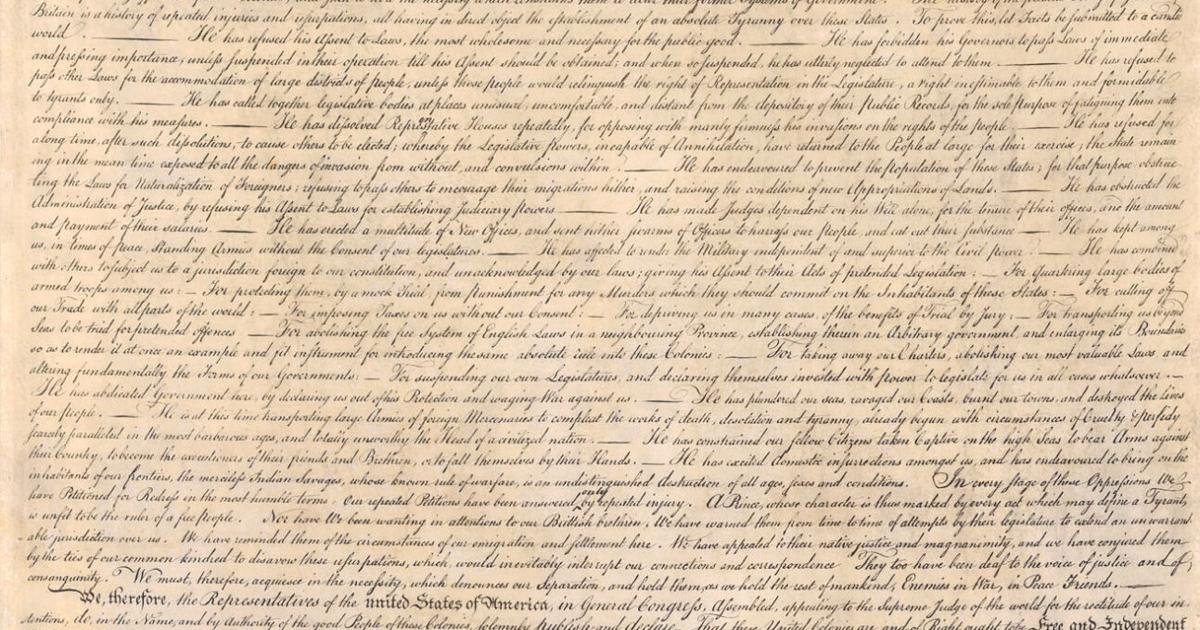 Britain is a history of repeated injuries and usurpations, all having in direct object the establishment of an absolute Tyranny over these States. To prove this, let Facts be submitted to a candid
world. — He has refused his Assent to Laws, the most wholesome and necessary for the public good. — He has forbidden his Governors to pass Laws of immediate
and pressing importance, unless suspended in their operation till his Assent should be obtained; and when so suspended, he has utterly neglected to attend to them. — He has refused to
pass other Laws for the accommodation of large districts of people, unless those people would relinquish the right of Representation in the Legislature, a right inestimable to them and formidable
to tyrants only. — He has called together legislative bodies at places unusual, uncomfortable, and distant from the depository of their Public Records, for the sole purpose of fatiguing them into
compliance with his measures. — He has dissolved Representative Houses repeatedly, for opposing with manly firmness his invasions on the rights of the people. — He has refused for
a long time, after such dissolutions, to cause others to be elected; whereby the Legislative powers, incapable of Annihilation, have returned to the People at large for their exercise; the State remain
ing in the mean time exposed to all the dangers of invasion from without, and convulsions within. — He has endeavoured to prevent the population of these States; for that purpose obstruc
ting the Laws for Naturalization of Foreigners; refusing to pass others to encourage their migrations hither, and raising the conditions of new Appropriations of Lands. — He has obstructed the
Administration of Justice, by refusing his Assent to Laws for establishing Judiciary powers. — He has made Judges dependent on his Will alone, for the tenure of their offices, and the amount
and payment of their salaries. — He has erected a multitude of New Offices, and sent hither swarms of Officers to harrass our people, and eat out their substance. — He has kept among
us, in times of peace, Standing Armies without the Consent of our legislatures. — He has affected to render the Military independent of and superior to the Civil power. — He has combined
with others to subject us to a jurisdiction foreign to our constitution, and unacknowledged by our laws; giving his Assent to their Acts of pretended Legislation: — For Quartering large bodies of
armed troops among us: — For protecting them, by a mock Trial, from punishment for any Murders which they should commit on the Inhabitants of these States: — For cutting off
our Trade with all parts of the world: — For imposing Taxes on us without our Consent: — For depriving us in many cases, of the benefits of Trial by Jury: — For transporting us beyond
Seas to be tried for pretended offences — For abolishing the free System of English Laws in a neighbouring Province, establishing therein an Arbitrary government, and enlarging its Boundaries
so as to render it at once an example and fit instrument for introducing the same absolute rule into these Colonies: — For taking away our Charters, abolishing our most valuable Laws, and
altering fundamentally the Forms of our Governments: — For suspending our own Legislatures, and declaring themselves invested with power to legislate for us in all cases whatsoever. —
He has abdicated Government here, by declaring us out of his Protection and waging War against us. — He has plundered our seas, ravaged our Coasts, burnt our towns, and destroyed the lives
of our people. — He is at this time transporting large Armies of foreign Mercenaries to compleat the works of death, desolation and tyranny, already begun with circumstances of Cruelty & perfidy
scarcely paralleled in the most barbarous ages, and totally unworthy the Head of a civilized nation. — He has constrained our fellow Citizens taken Captive on the high Seas to bear Arms against
their Country, to become the executioners of their friends and Brethren, or to fall themselves by their Hands. — He has excited domestic insurrections amongst us, and has endeavoured to bring on the
inhabitants of our frontiers, the merciless Indian Savages, whose known rule of warfare, is an undistinguished destruction of all ages, sexes and conditions. In every stage of these Oppressions We
have Petitioned for Redress in the most humble terms: Our repeated Petitions have been answered only by repeated injury. A Prince, whose character is thus marked by every act which may define a Tyrant,
is unfit to be the ruler of a free people. Nor have We been wanting in attentions to our Brittish brethren. We have warned them from time to time of attempts by their legislature to extend an unwarrant
able jurisdiction over us. We have reminded them of the circumstances of our emigration and settlement here. We have appealed to their native justice and magnanimity, and we have conjured them
by the ties of our common kindred to disavow these usurpations, which, would inevitably interrupt our connections and correspondence. They too have been deaf to the voice of justice and of
consanguinity. We must, therefore, acquiesce in the necessity, which denounces our Separation, and hold them, as we hold the rest of mankind, Enemies in War, in Peace Friends. —
We, therefore, the Representatives of the united States of America, in General Congress, Assembled, appealing to the Supreme Judge of the world for the rectitude of our in
tentions, do, in the Name, and by Authority of the good People of these Colonies, solemnly publish and declare, That these United Colonies are, and of Right ought to be Free and Independent